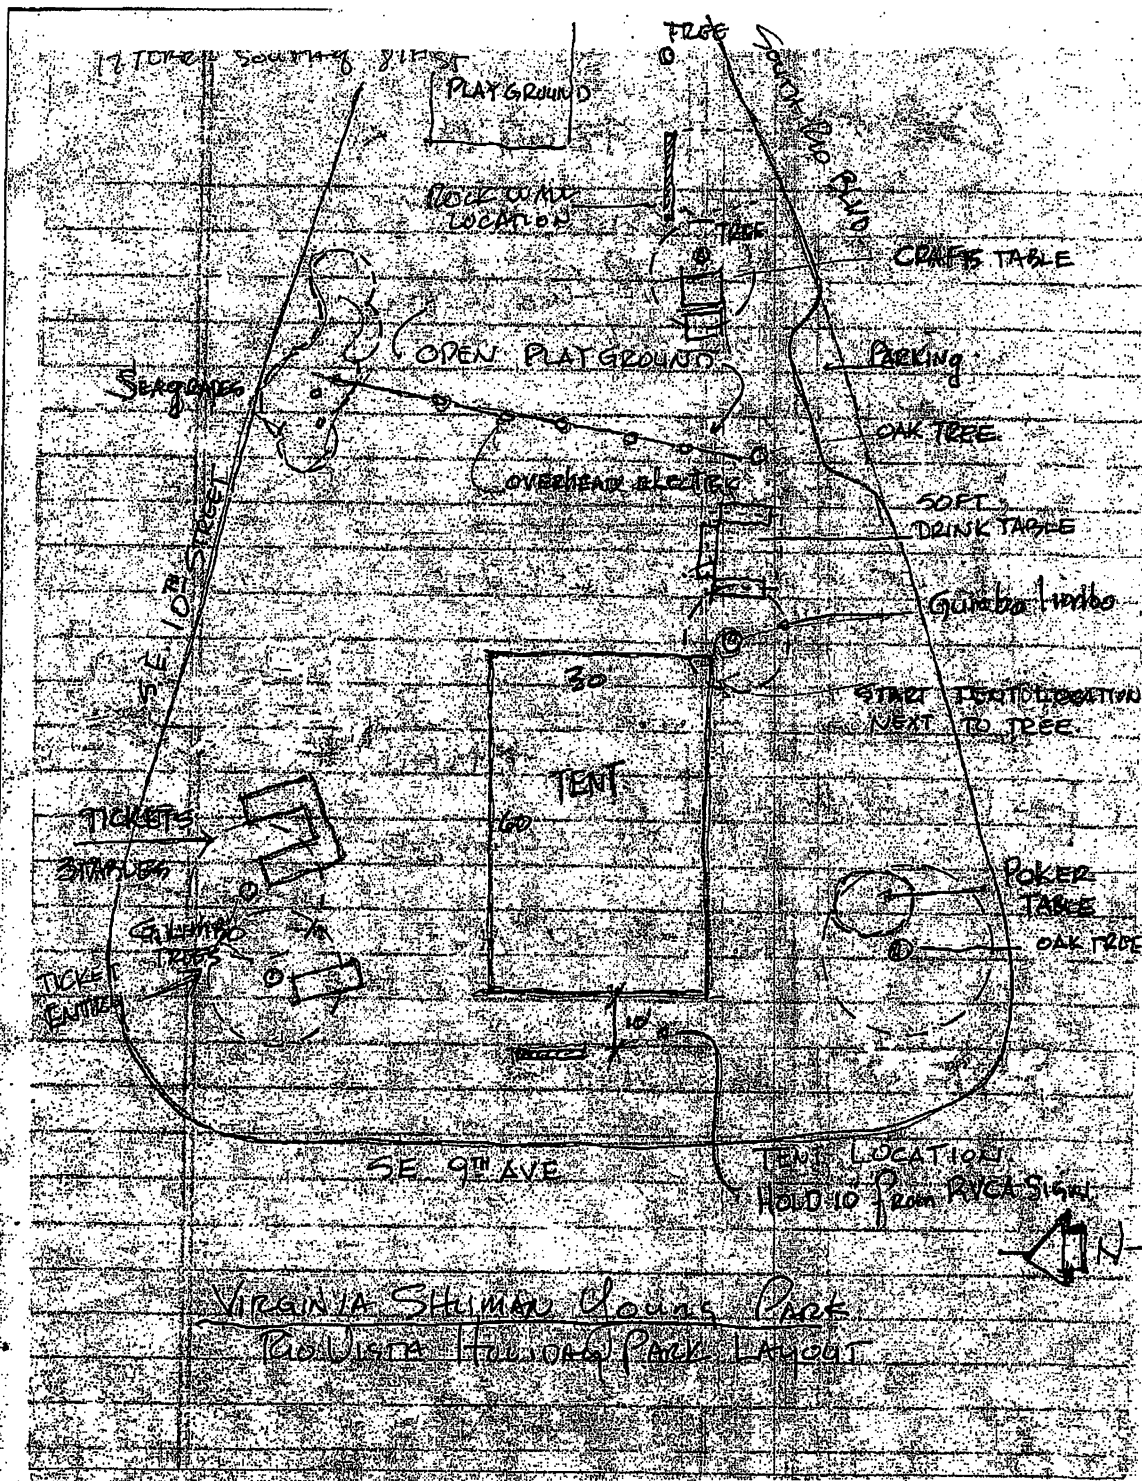 TREE
PLAYGROUND
SOUTH RIO BLVD
ROCK WALL
LOCATION
TREE
CRAFTS TABLE
OPEN PLAYGROUND
PARKING
SEAGRAPES
OAK TREE
OVERHEAD ELECTRIC
SOFT
DRINK TABLE
S.E. 10TH STREET
Gumbo limbo
30
START TENT LOCATION
NEXT TO TREE
TENT
60
TICKETS
3 TABLES
POKER
TABLE
GUMBO
TREES
OAK TREE
TICKET
ENTRY
10'
SE 9TH AVE
TENT LOCATION
HOLD 10' From RVCA SIGN
N
VIRGINIA SHUMAN YOUNG PARK
RIO VISTA HOLIDAY PARK LAYOUT